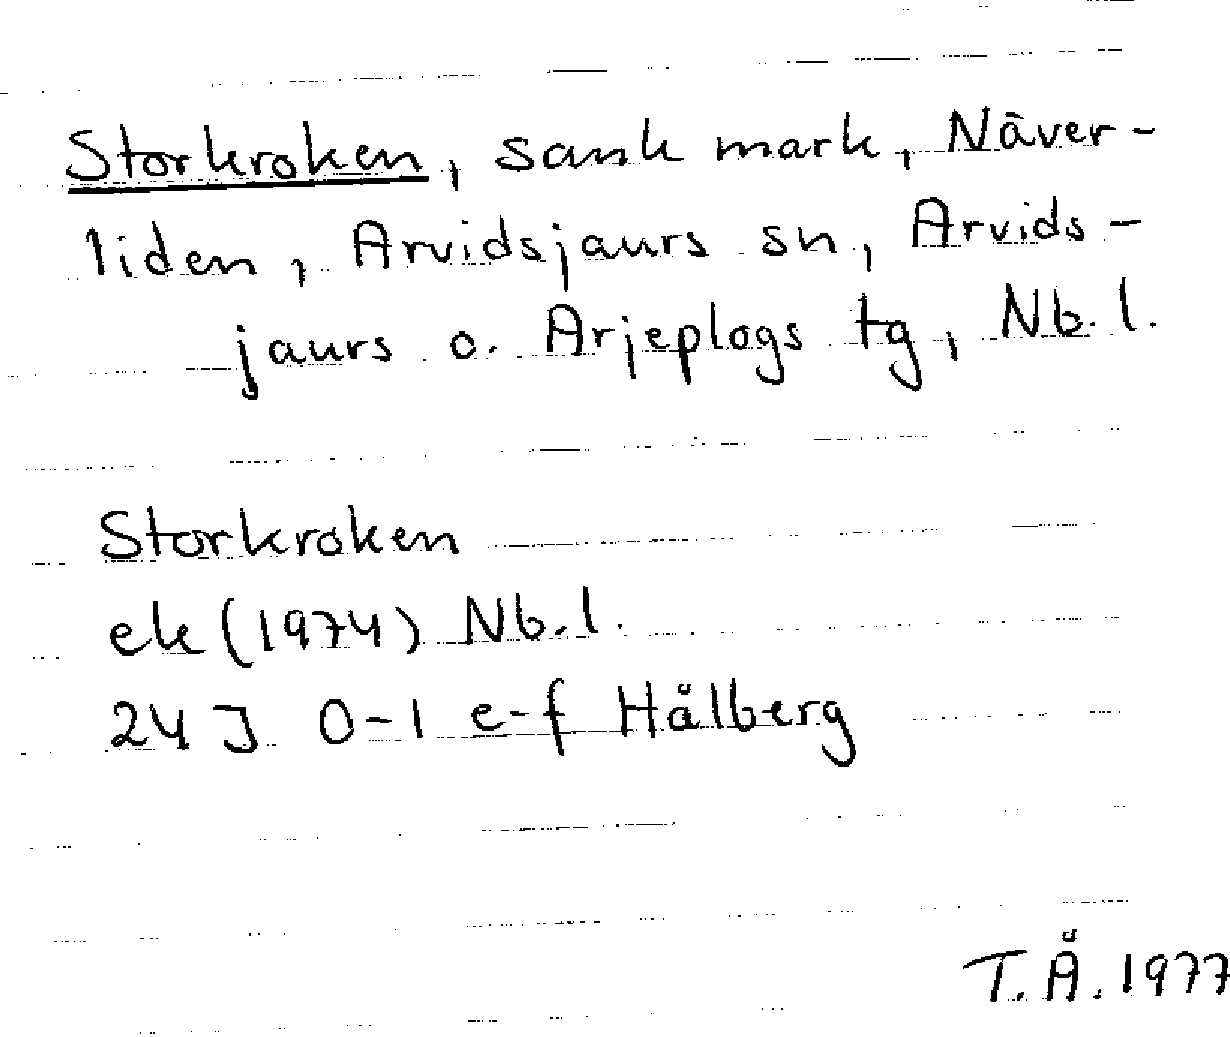 Storkroken, sank mark, Näver-
liden, Arvidsjaurs sn, Arvids-
jaurs o. Arjeplogs tg, Nb.l.
Storkroken
ek (1974) Nb.l.
24 J 0-1 e-f Hålberg
T.Å. 1977